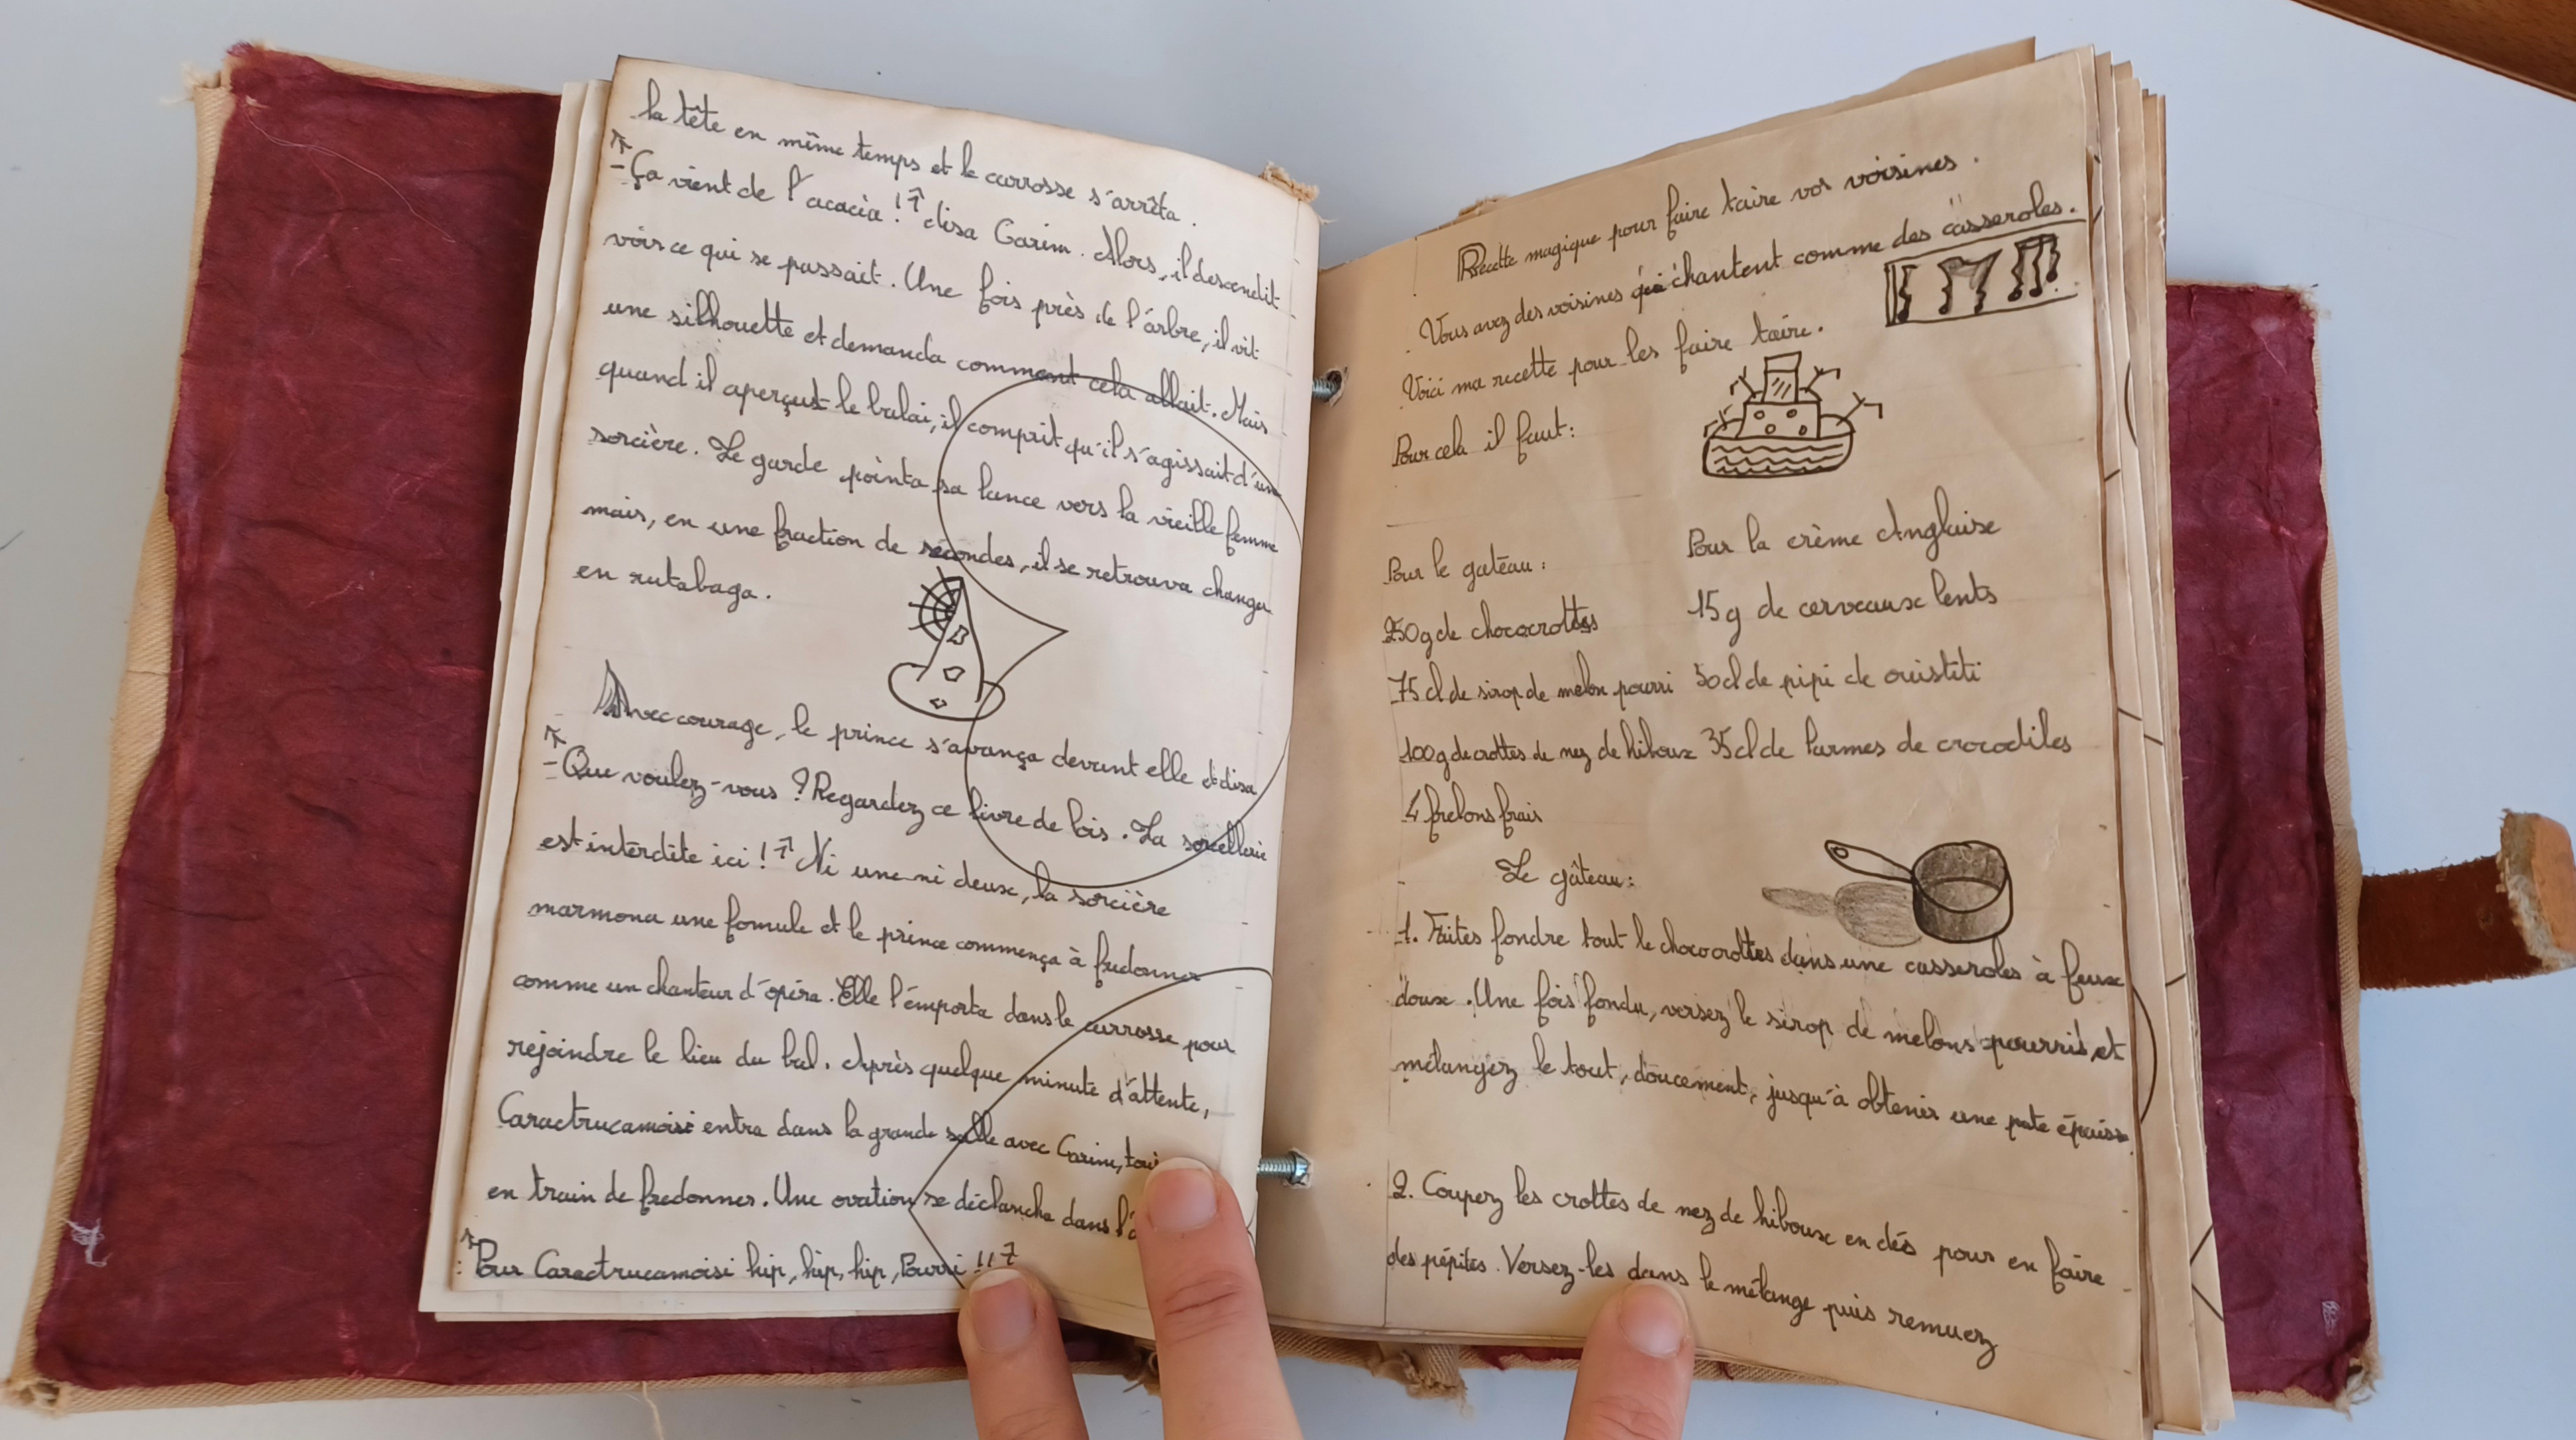 la tête en même temps et le carrosse s'arrêta.
"-Ça vient de l'acacia !" disa Carim. Alors, il descendit
voir ce qui se passait. Une fois près de l'arbre, il vit
une silhouette et demanda comment cela allait. Mais
quand il aperçut le balai, il comprit qu'il s'agissait d'un
sorcière. Le garde pointa sa lance vers la vieille femme
mais, en une fraction de secondes, il se retrouva changer
en rutabaga.
Avec courage, le prince s'avança devant elle et disa
"-Que voulez-vous ? Regardez ce livre de lois. La sorcellerie
est interdite ici !" Ni une ni deux, la sorcière
marmona une fomule et le prince commença à fredonner
comme un chanteur d'opéra. Elle l'emporta dans le carrosse pour
rejoindre le lieu du bal. Après quelque minute d'attente,
Caractrucamoisi entra dans la grande salle avec Carim,
en train de fredonner. Une ovation se déclancha dans
"Pour Caractrucamoisi hip, hip, hip, Pourri !!"
Recette magique pour faire taire vos voisines.
Vous avez des voisines qui chantent comme des casseroles.
Voici ma recette pour les faire taire.
Pour cela il faut:
Pour le gateau:
250g de chococrottes
75 cl de sirop de melon pourri
100g de crottes de nez de hiboux
4 frelons frais
Pour la crème Anglaise
15g de cerveaux lents
50cl de pipi de ouistiti
35cl de larmes de crocodiles
Le gâteau:
1. Faites fondre tout le chococrottes dans une casseroles à feux
doux. Une fois fondu, versez le sirop de melons pourris, et
mélangez le tout, doucement, jusqu'à obtenir une pate épaisse
2. Coupez les crottes de nez de hiboux en dés pour en faire
des pépites. Versez-les dans le mélange puis remuez